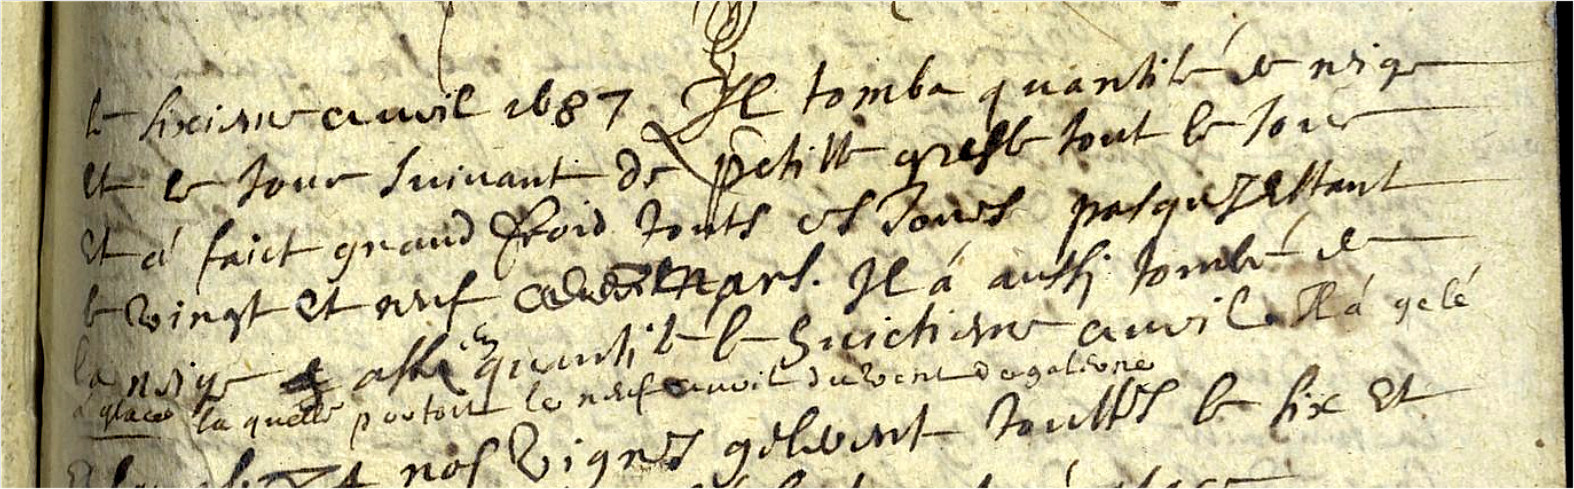 le sixiesme auvril 1687 Il tomba quantité de neige
et le jour suivant de petitte gresle tout le jour
et á faict grand froid touts ces Jours pasques estant
le vingt et neuf mars. Il á aussi tombé de
la neige assé en quantité le huictiesme auvril. Il á gelé
á glace la quelle portoit le neuf auvril du vent de galerne
nos vignes gelerent touttes le six et